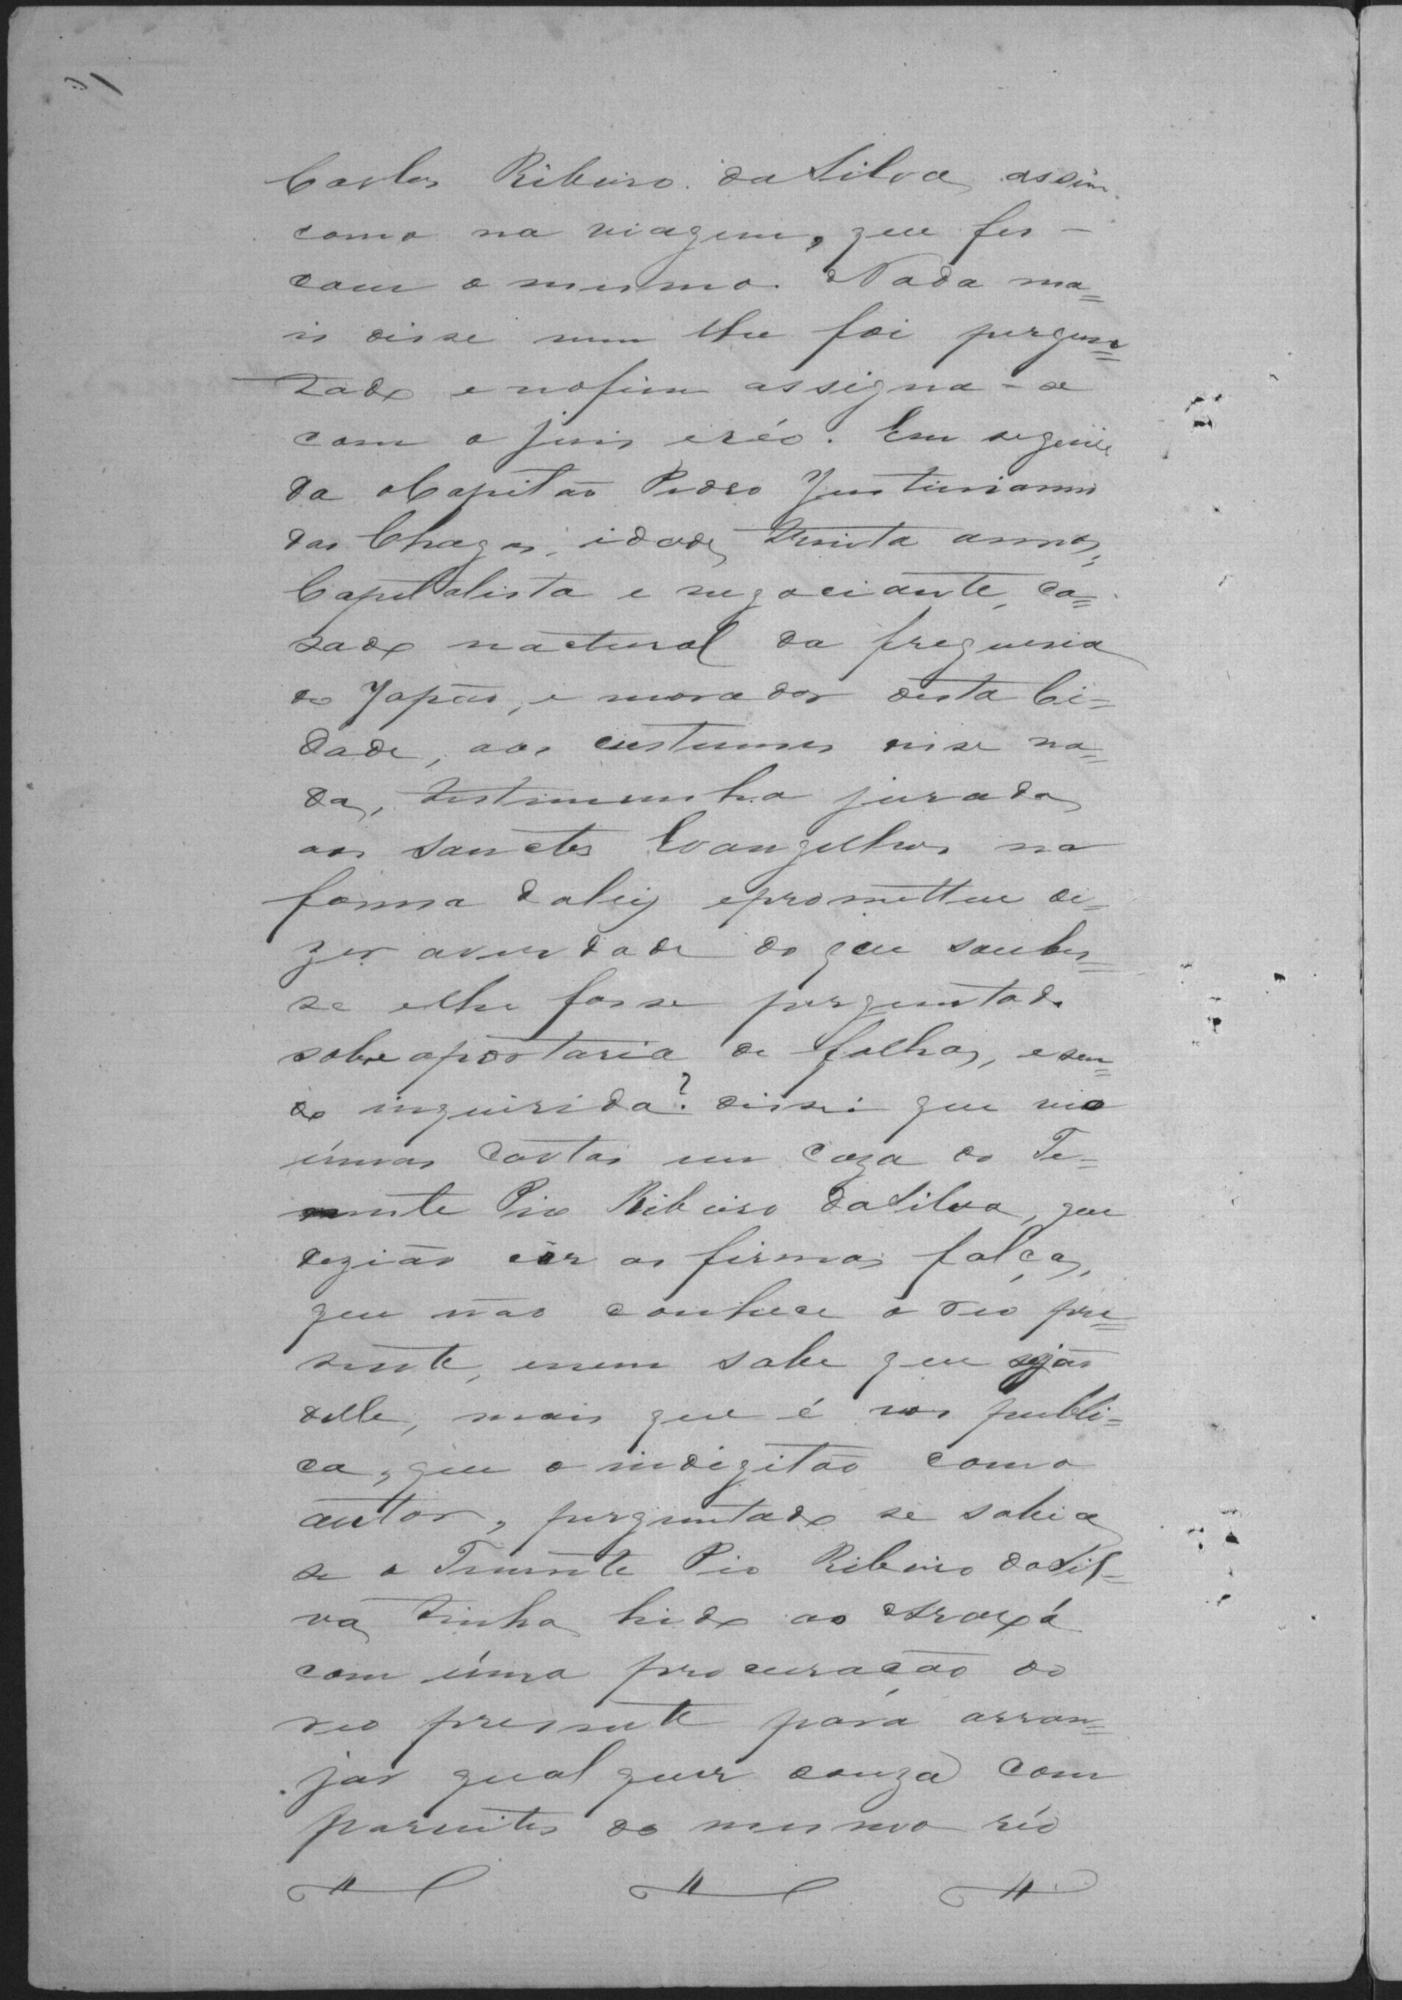 Carlos Ribeiro da Silva assim
como na viagem, que fes
com o mesmo. Nada ma=
is disse nem lhe foi pergun=
tado e nofim assigna-se
com o juis eréo. Em segui
da oCapitão Pedro Justinianno
das Chagas, idade trinta annos,
Capitalista e negociante, ca=
sado nactural da freguesia
do Japão, e morador desta Ci=
dade, aos custumes disse na=
da, testimunha jurada
aos Sanctos Evangelhos na
forma daley eprometteu di=
zer averdade do que soubes=
se elhe fosse perguntado
sobre aportaria de folhas, esen=
do inquirida? disse que vio
úmas Cartas em Caza do Te=
nente Pio Ribeiro daSilva, que
dizião ser as firmas falças,
que não conhece o reo pre=
sente, enem sabe que sejão
delle, mais que é vos publi=
ca, que o indigitão como
autor, perguntado se sabia
se o Tenente Pio Ribeiro daSil=
va tinha hido ao Araxá
com úma procuração do
reo presente para arran=
jar qual quer couza com
parentes do mesmo réo